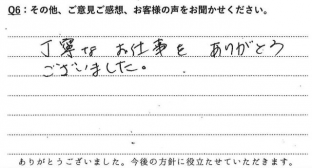 Q6：その他、ご意見ご感想、お客様の声をお聞かせください。
丁寧な お仕事を ありがとう
ございました。
ありがとうございました。今後の方針に役立たせていただきます。